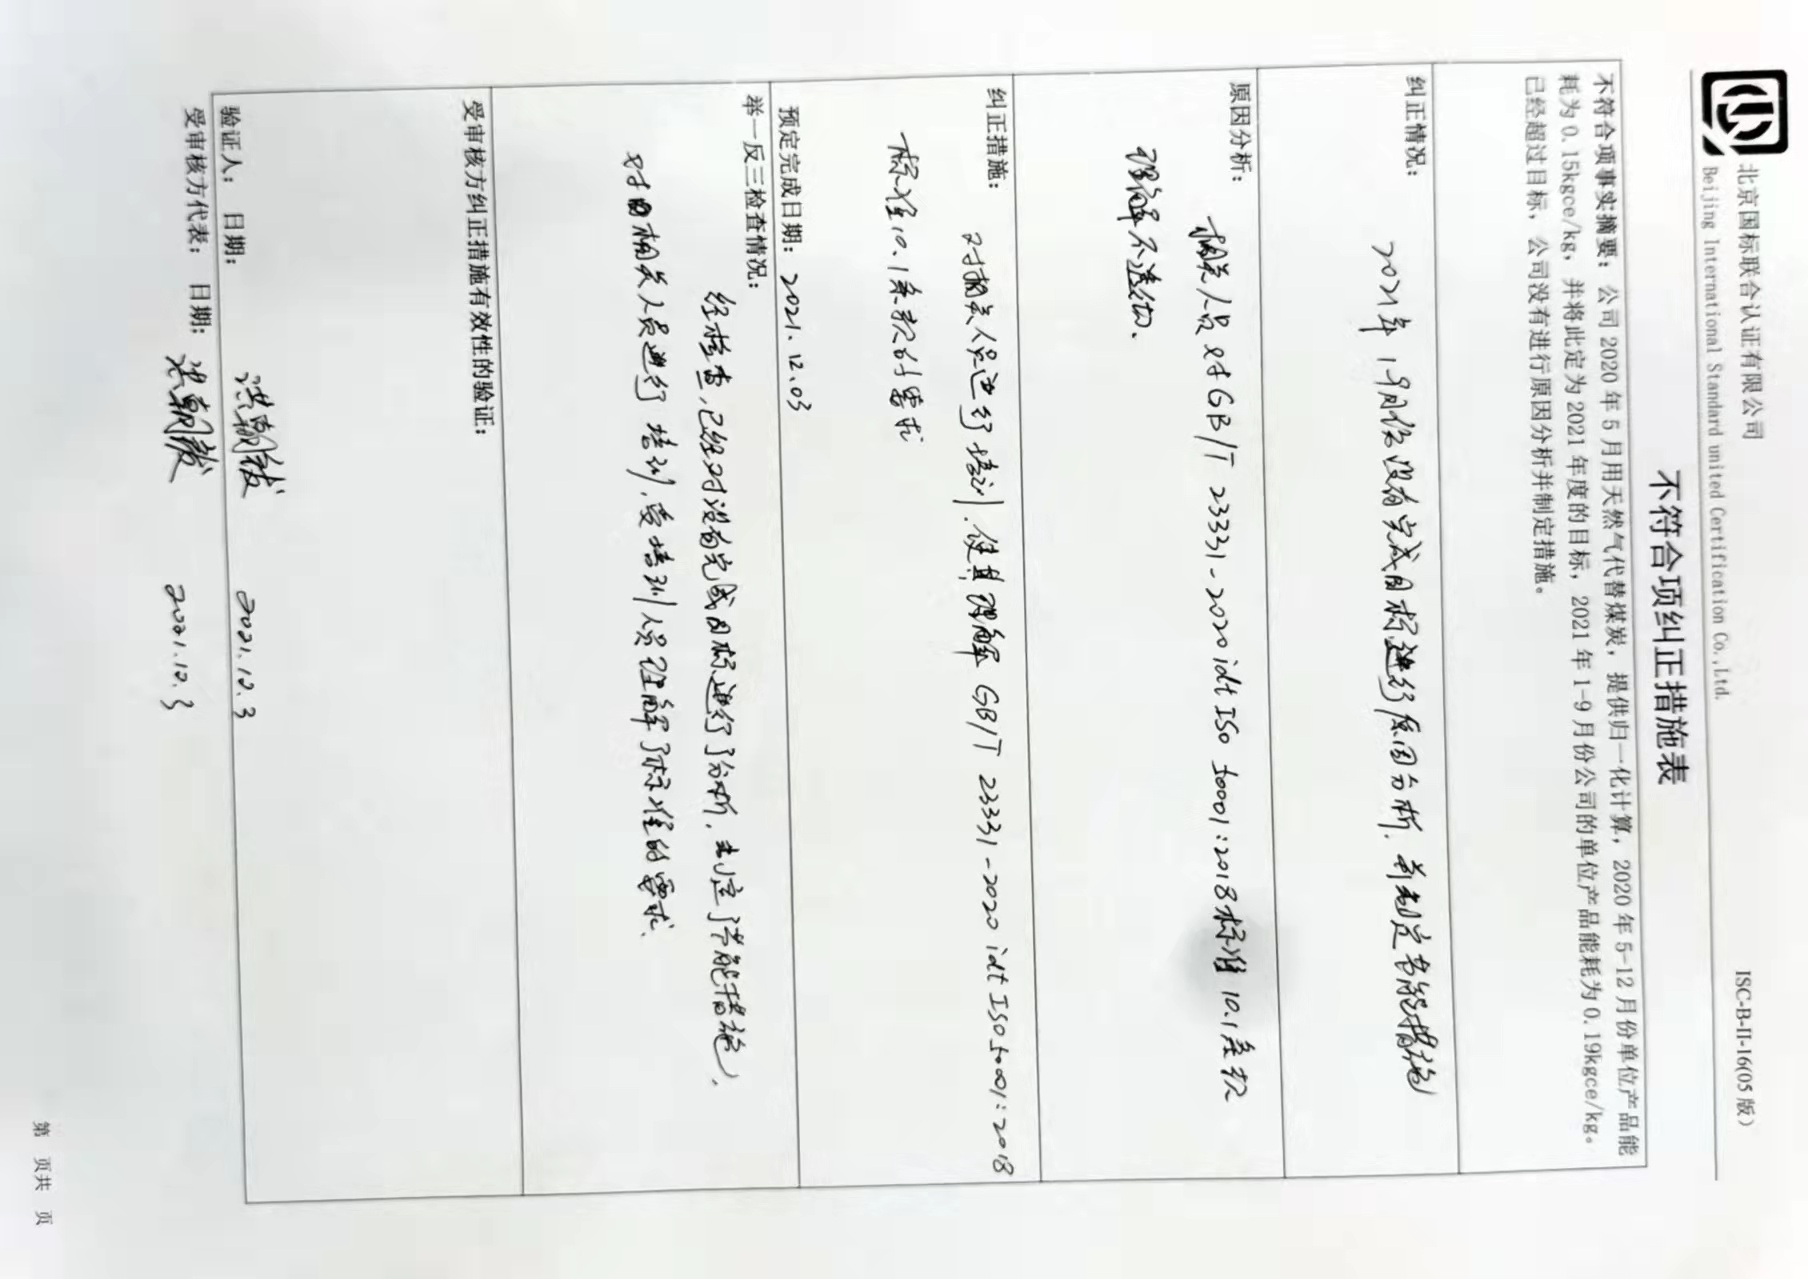 北京国标联合认证有限公司
ISC-B-II-16(05 版)
Beijing International Standard united Certification Co.,Ltd.
不符合项纠正措施表
不符合项事实摘要：公司 2020 年 5 月用天然气代替煤炭，提供归一化计算，2020 年 5-12 月份单位产品能
耗为 0.15kgce/kg，并将此定为 2021 年度的目标，2021 年 1-9 月份公司的单位产品能耗为 0.19kgce/kg。
已经超过目标，公司没有进行原因分析并制定措施。
纠正情况：
2021年1-9月份没有完成目标进行原因分析，并制定节能措施
原因分析：
相关人员对GB/T 23331-2020 idt ISO 50001:2018标准10.1条款
理解不透彻、
纠正措施：
对相关人员进行培训，使其理解 GB/T 23331-2020 idt ISO 50001:2018
标准10.1条款的要求
预定完成日期：2021.12.03
举一反三检查情况：
经检查，已经对没有完成目标进行了分析，制定了节能措施，
对相关人员进行培训，受培训人员理解了标准的要求
受审核方纠正措施有效性的验证：
验证人： 日期： 2021.12.3
受审核方代表： 日期： 2021.12.3
第 页共 页